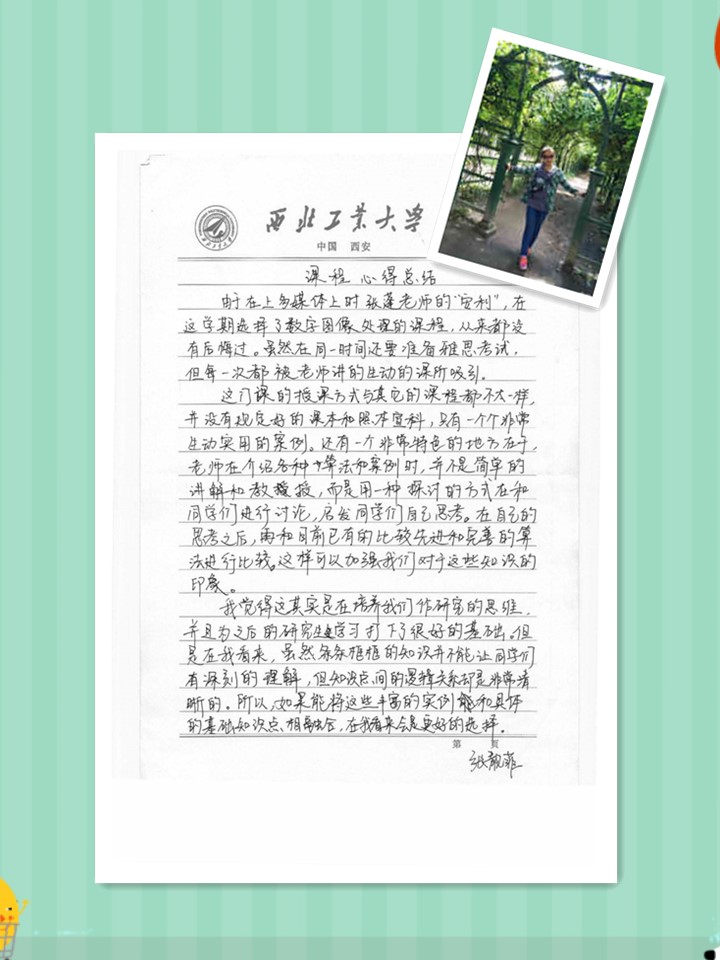 西北工业大学
中国 西安
课程心得总结
由于在上多媒体上时张莲老师的“安利”，在
这学期选择了数字图像处理的课程，从来都没
有后悔过。虽然在同一时间还要准备雅思考试，
但每一次都被老师讲的生动的课所吸引。
这门课的授课方式与其它的课程都不太一样，
并没有规定好的课本和照本宣科，只有一个个非常
生动实用的案例。还有一个非常特色的地方在于，
老师在介绍各种算法和案例时，并不是简单的
讲解和教授，而是用一种探讨的方式在和
同学们进行讨论，启发同学们自己思考。在自己的
思考之后，再和目前已有的比较先进和完善的算
法进行比较。这样可以加强我们对于这些知识的
印象。
我觉得这其实是在培养我们作研究的思维，
并且为之后的研究生学习打下了很好的基础。但
是在我看来，虽然条条框框的知识并不能让同学们
有深刻的理解，但知识点间的逻辑关系却是非常清
晰的。所以，如果能将这些丰富的实例能和具体
的基础知识点相融合，在我看来会是更好的选择。
第 页
张靓菲